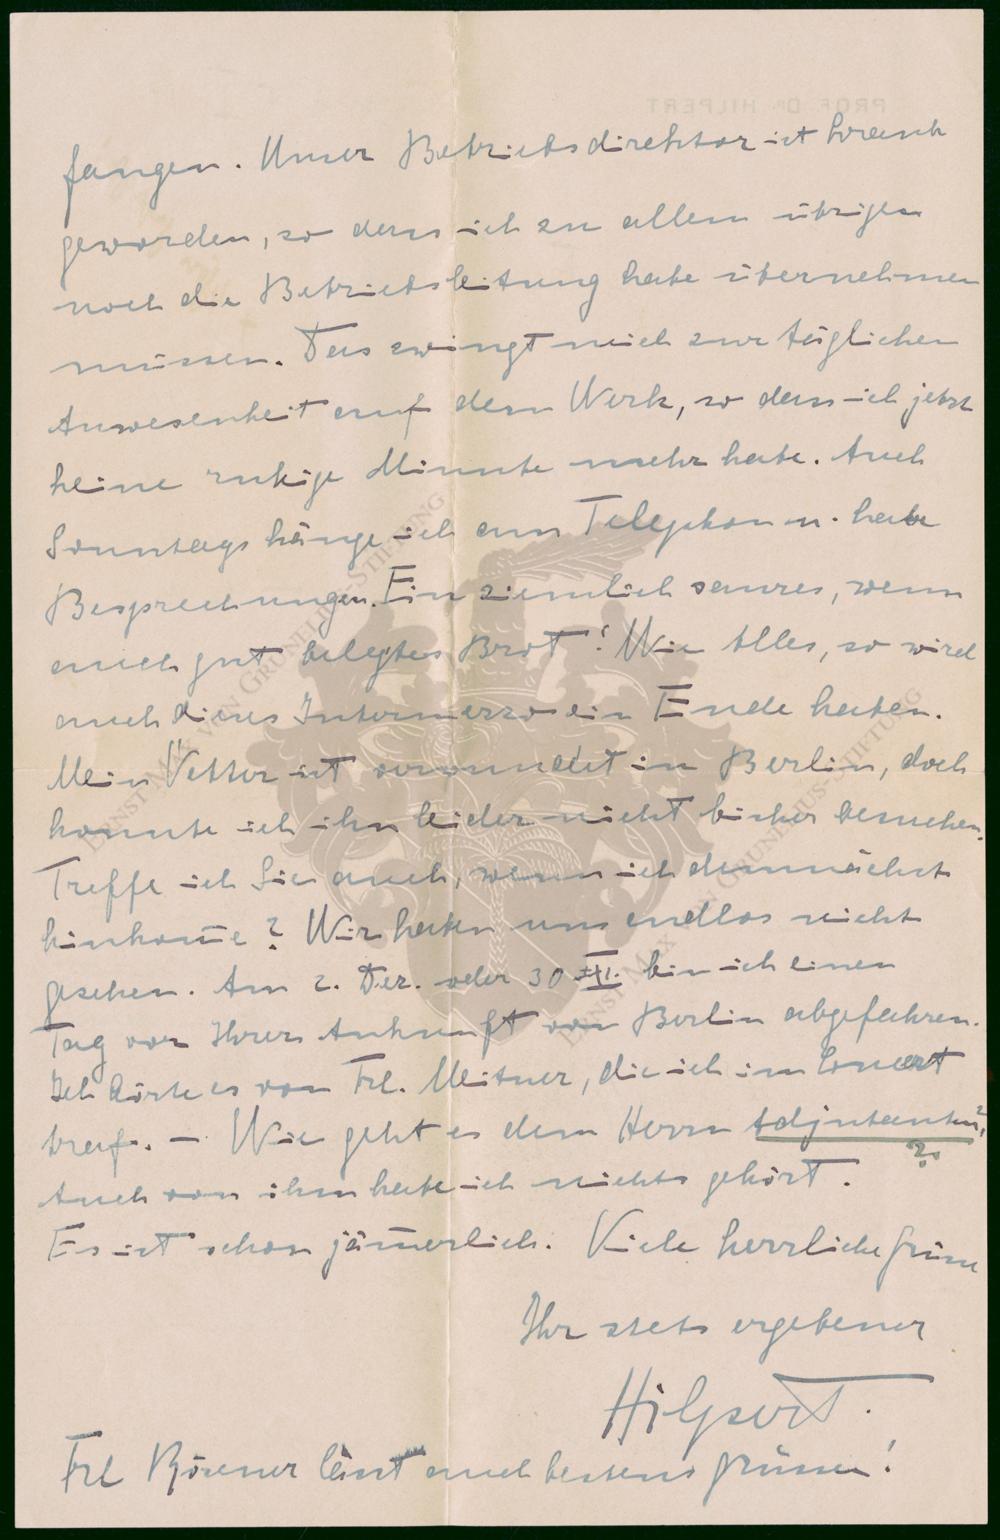 PROF. DR. HILPERT
fangen. Unser Betriebsdirektor ist krank
geworden, so dass ich zu allem übrigen
noch die Betriebsleitung habe übernehmen
müssen. Das zwingt mich zur täglichen
Anwesenheit auf dem Werk, so dass ich jetzt
keine ruhige Minute mehr habe. Auch
Sonntags hänge ich am Telephon u. habe
Besprechungen. Ein ziemlich saures, wenn
auch gut belegtes Brot! Wie Alles, so wird
auch dieses Intermezzo ein Ende haben.
Mein Vetter ist verwundet in Berlin, doch
konnte ich ihn leider nicht bisher besuchen.
Treffe ich Sie auch, wenn ich demnächst
hinkom̅e? Wir haben uns endlos nicht
gesehen. Am 2. Dez. oder 30 XI. bin ich einen
Tag vor Ihrer Ankunft von Berlin abgefahren.
Ich hörte es von Frl. Meitner, die ich im Concert
traf. — Wie geht es dem Herrn Adjutanten?
?
Auch von ihm habe ich nichts gehört.
Es ist schon jäm̅erlich. Viele herzliche Grüsse
Ihr stets ergebener
Hilpert.
Frl lässt auch bestens grüssen!
ERNST MAX VON GRUNELIUS-STIFTUNG
ERNST MAX VON GRUNELIUS-STIFTUNG